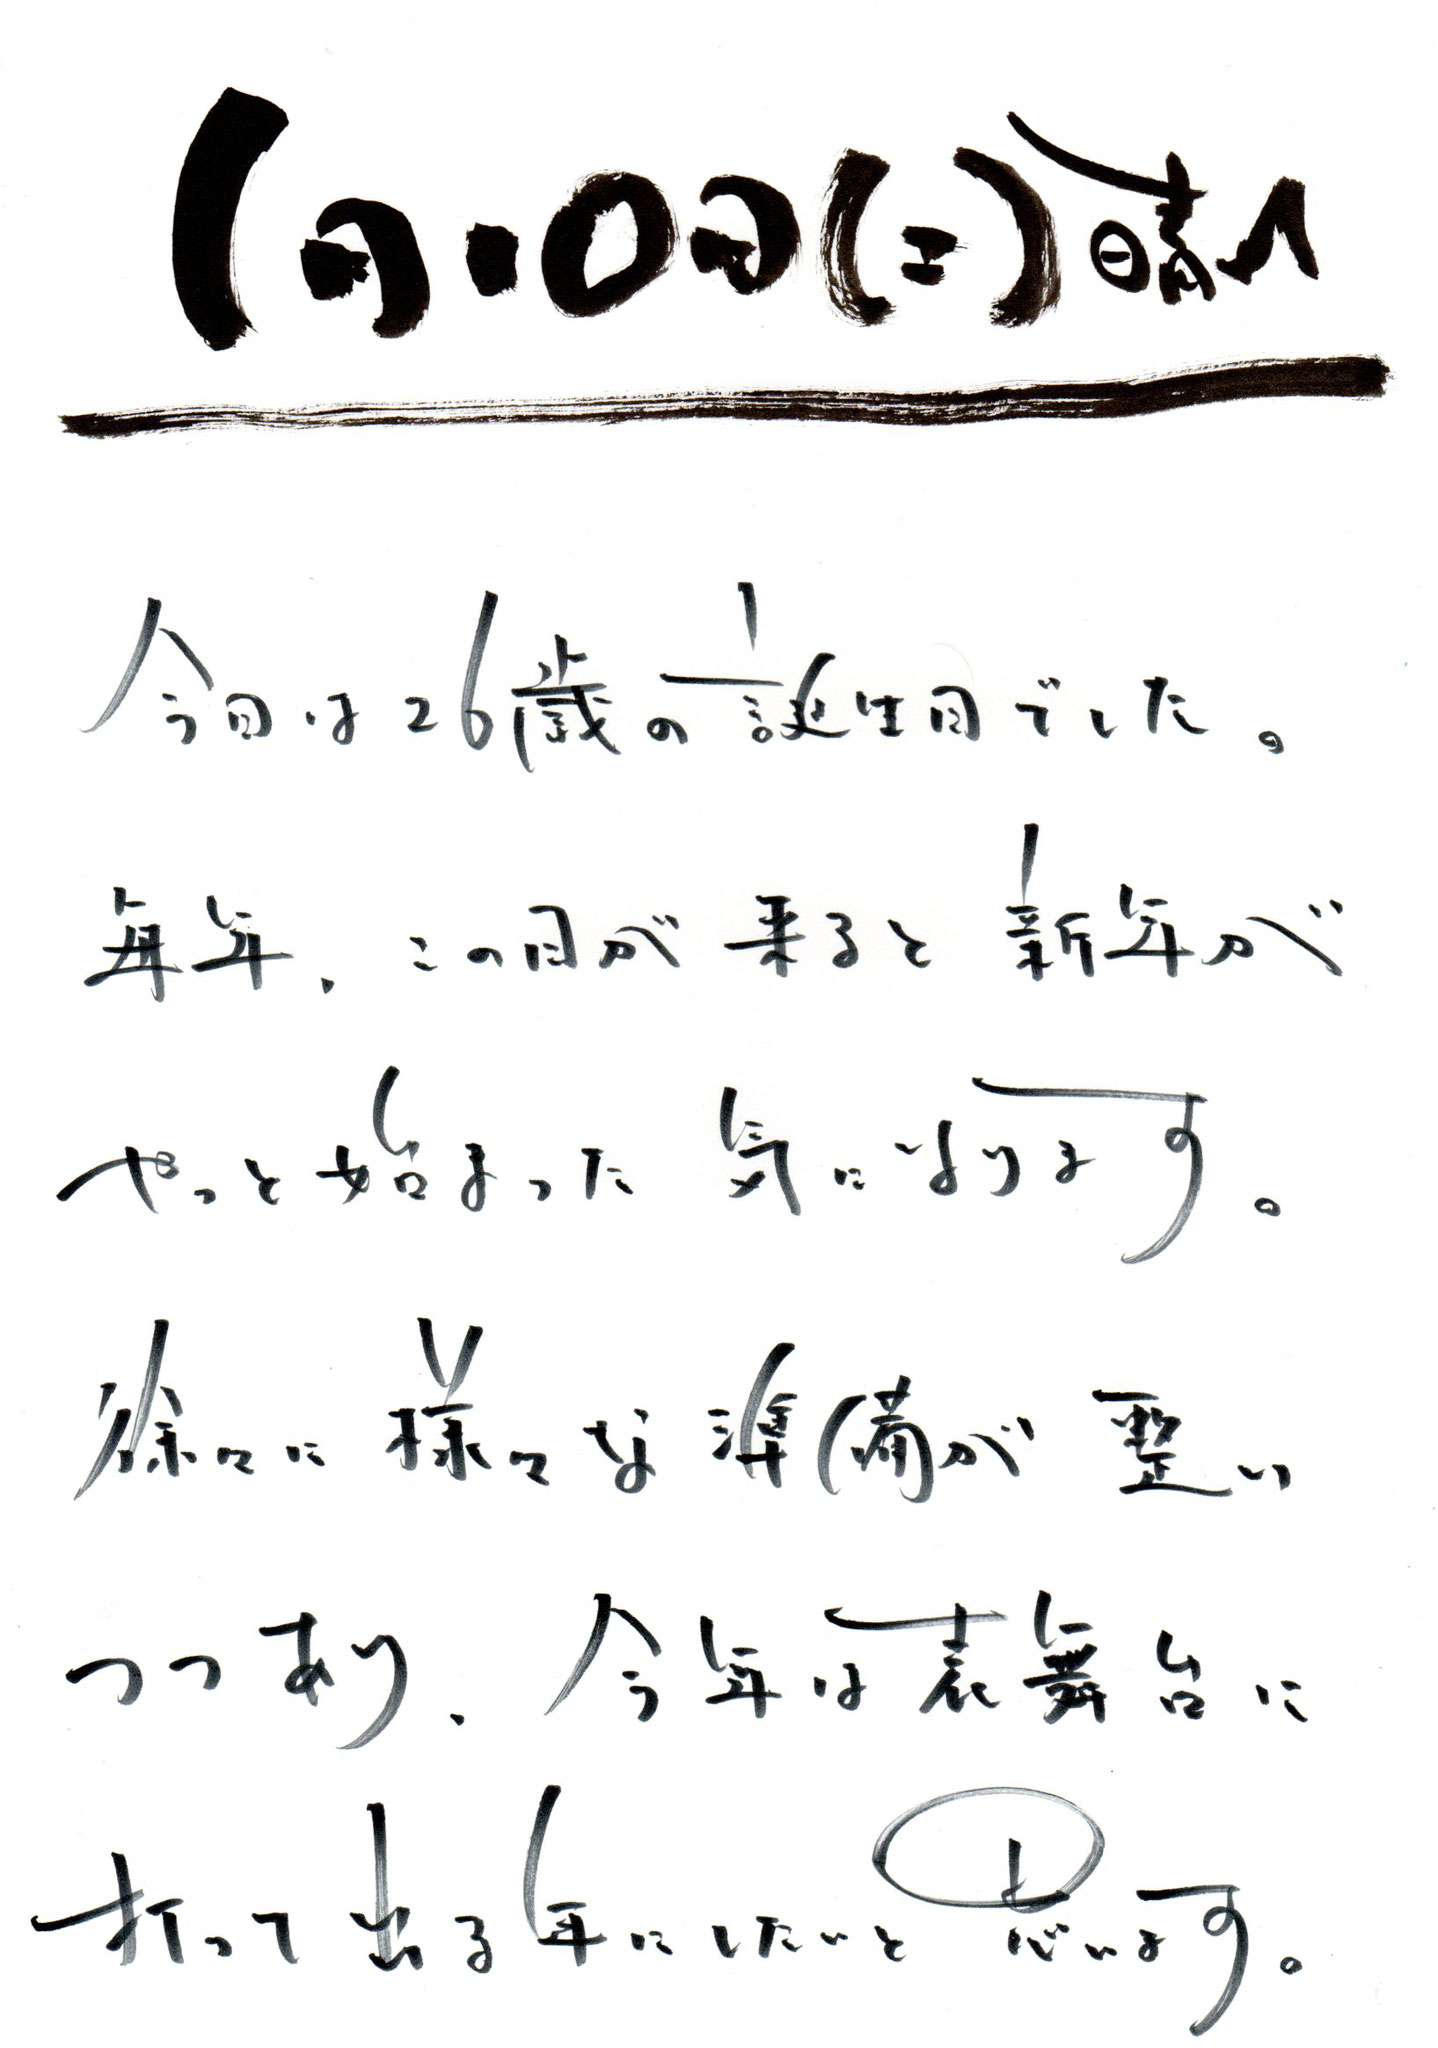 1月10日(土)晴れ
今日は26歳の誕生日でした。
毎年、この日が来ると新年が
やっと始まった気になります。
徐々に様々な準備が整い
つつあり、今年は表舞台に
打って出る年にしたいと思います。